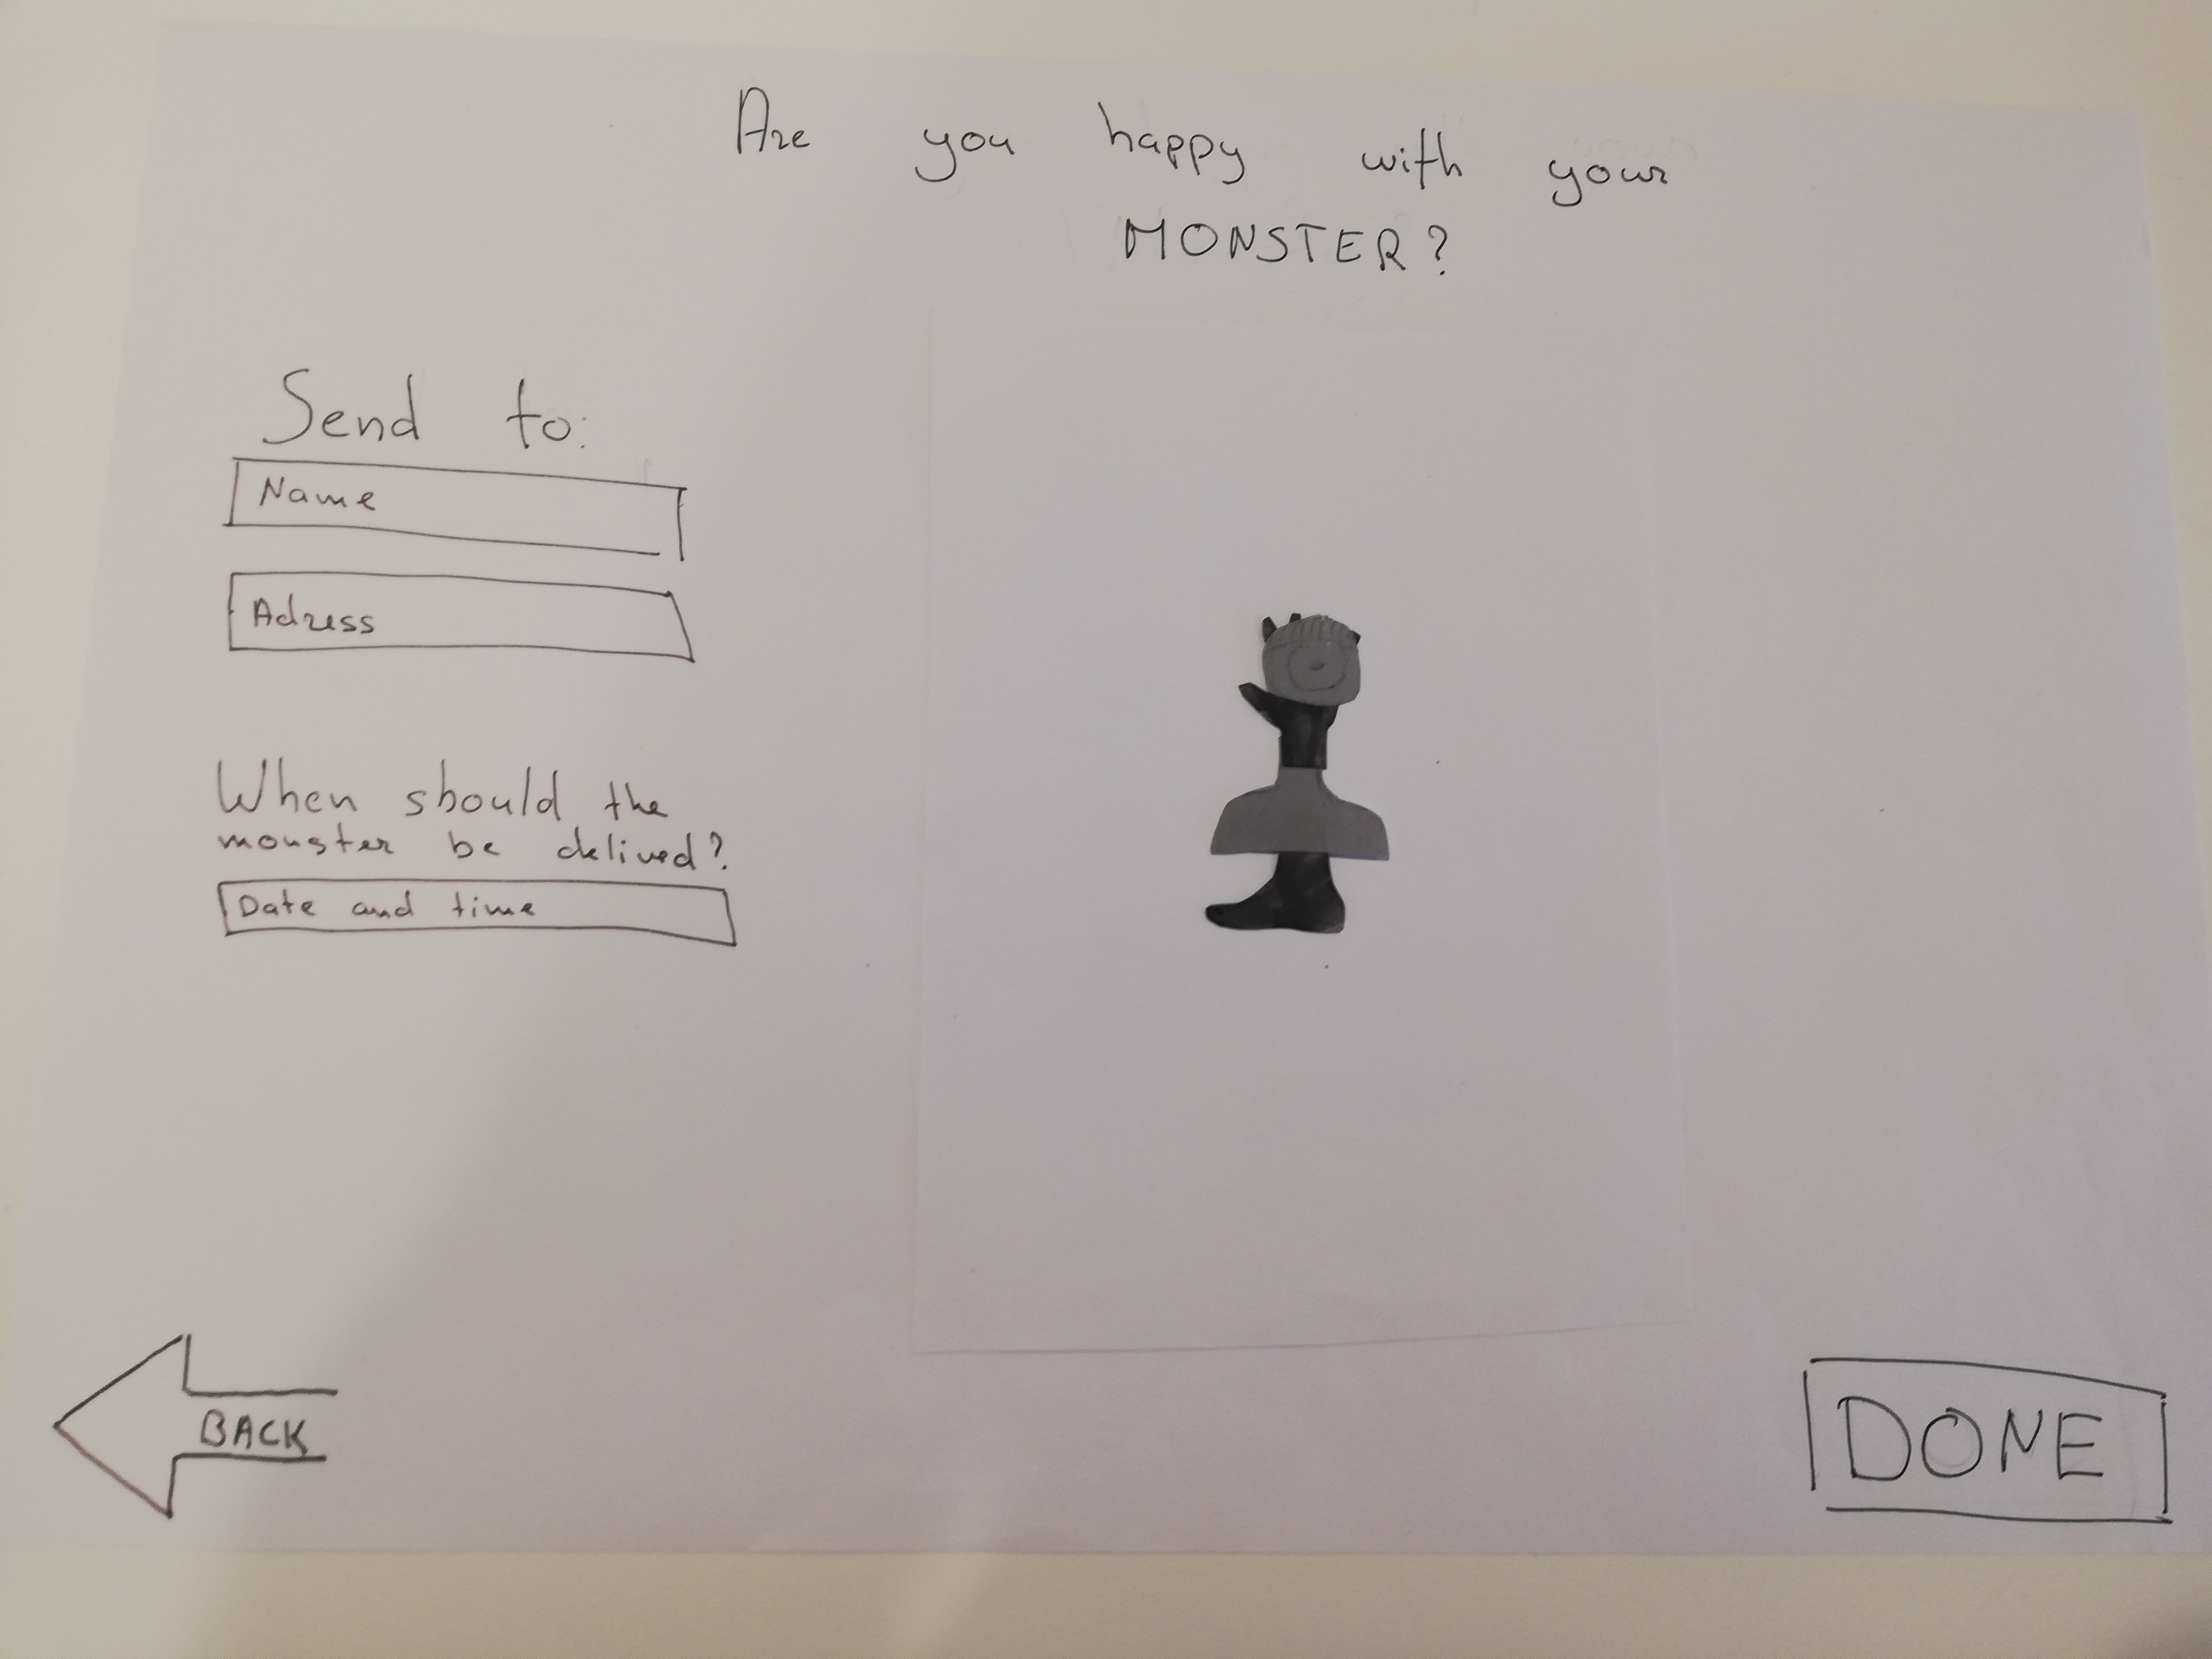 Are you happy with your
MONSTER?
Send to:
Name
Adress
When should the
monster be delived?
Date and time
BACK
DONE